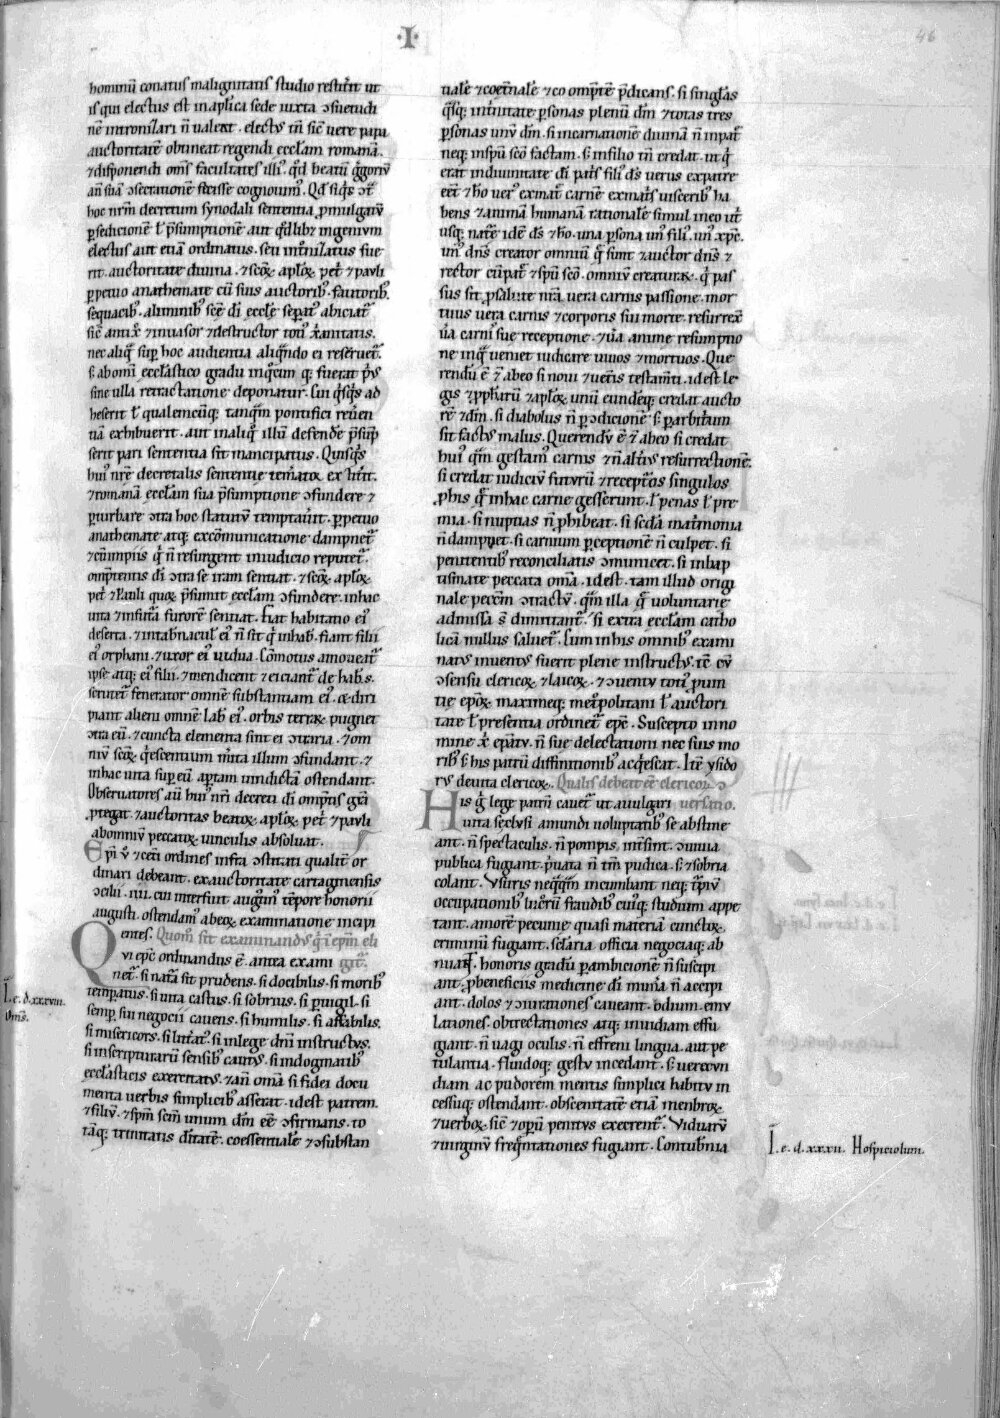 ·I·
46
hominū conatus malignitatis studio restit̄it ut
is qui electus est in aplica sede iuxta ɔsuetudi
nē intronizari n̄ ualeat. electꝰ tn̄ sic̄ uere papa
auctoritatē obtineat regendi ecclam romanā.
⁊ disponendi om̄s facultates illiꝰ. qd̄ beatū g̃goriū
an̄ suā ɔsecrationē fecisse cognouimꝰ. Qd̄ siq̇s ɔt̄
hoc nr̄m decretum synodali sententia ꝓmulgatū
ꝑ sedicionē ł p̄sumptionē aut qd̄libꝫ ingenium
electus aut etiā ordinatus. seu intꝰnizatus fue
rit. auctoritate diuina. ⁊ scoꝝ aploꝝ pet̄ ⁊ pauli
ꝑpetuo anathemate cū suis auctoribꝫ. fautoribꝫ.
sequacibꝫ. alumnibꝫ sc̄e di eccle sepatꝰ abiciat̄
sic̄ antix̄ ⁊ inuasor ⁊ destructor totiꝰ x̄anitatis.
nec aliq̃ suꝑ hoc audientia aliq̃ndo ei reseruet̄.
s; ab omi ecclastico gradu inq̄cum qꝫ fuerat pꝰs
sine ulla retractatione deponatur. Cui q̇sq̇s ad
heserit ł qualemcūqꝫ tanq̃m pontifici reuen
tiā exhibuerit. aut in aliq̊ illū defendē p̄sūp
serit pari sententia sit mancipatus. Quisq̇s
huiꝰ nr̄e decretalis sententie tem̄atoꝝ exꝰtit̄it.
⁊ romanā ecclam sua p̄sumptione ɔfundere ⁊
ꝑturbare ɔtra hoc statutū temptauit̄. ꝑpetuo
anathemate atqꝫ excōmunicatione dampnet̄
⁊ cū impiis q̇ n̄ resurgent in iudicio reputet̄.
omp̄tentis di ɔtra se iram sentiat. ⁊ scoꝝ aploꝝ
pet̄ ⁊ Pauli quoꝝ p̄sumit ecclam ɔfundere. in hac
uita ⁊ in fut̄a furorē sentiat. Fiat habitatio eiꝰ
deserta. ⁊ in tab̄naculꝰ eiꝰ n̄ sit q̇ inhabꝫ. fiant filii
eiꝰ orphani. ⁊ uxor eiꝰ uidua. Cōmotus amoueat̄
ipse atqꝫ eiꝰ filii. ⁊ mendicent ⁊ eiciant̄ de habꝫ s.
scrutet̄ fenerator omnē substantiam eiꝰ. ⁊ diri
piant alieni omnē lab̄ eiꝰ. orbis terraꝝ pugnet
ɔtra eū. ⁊ cuncta elementa sint ei ɔtraria. ⁊ om
niū scoꝝ q̇escentium m̄ita illum ɔfundant. ⁊
in hac uita suꝑ eū aꝑtam uindictā ostendant.
Obseruatores aū huiꝰ nr̄i decreti di omp̄tis gr̄a
ꝓtegat ⁊ auctoritas beatoꝝ aploꝝ pet̄ ⁊ pauli
ab omniū peccatoꝝ uinculis absoluat.
Epi ū ⁊ cet̄i ordines infra ɔstituti qualit̄ or
dinari debeant. ex auctoritate cartaginensis
ɔcilii .iiii. cui interfuit augꝰtinꝰ tēpore honorii
augusti. ostendamꝰ ab eoꝝ examinatione incipi
entes. Quom̊ sit examinandꝰ q̇ i epm̄ eli
Qui epc̄ ordinandus ē antea exami gitꝰ.
net̄. si nat̄a sit prudens. si docibilis. si moribꝫ
temꝑatus. si uita castus. si sobrius. si ꝑuigil. si
semꝑ sui negocii cauens. si humilis. si affabilis.
si misericors. si litt̄atꝰ. si in lege dn̄i instructꝰ.
si in scripturarū sensibꝫ cautꝰ. si in dogmatibꝫ
ecclasticis exercitatꝰ. ⁊ an̄ omā si fidei docu
menta uerbis simplicibꝫ asserat. id est patrem.
⁊ filiū. ⁊ spm̄ scm̄ unum dm̄ ēē ɔfirmans. to
tāqꝫ trinitatis ditatē. coessentialē ⁊ ɔsubstan
I. e. d. xxviii.
uł̄ mꝰ.
tialē ⁊ coet̄nalē ⁊ co omp̄tē p̄dicans. si singłas
q̃sqꝫ in tinitate ꝑsonas plenū dm̄ ⁊ totas tres
ꝑsonas unū dm̄. si incarnationē diuinā n̄ in pat̄
neqꝫ in spū sc̄o factam. s; in filio tn̄ credat. ut q̇
erat in diuinitate di pat̄s filiꝰ ds̄ uerus ex patre
eēt ⁊ hō uerꝰ ex mat̄. carnē ex mat̄s uisceribꝫ ha
bens ⁊ animā humanā rationalē simul in eo ut̄
usqꝫ nat̄e idē ds̄ ⁊ hō. una ꝑsona unꝰ filiꝰ. unꝰ xp̄c.
unꝰ dn̄s creator omniū q̄ sunt ⁊ auctor dn̄s ⁊
rector cū pat̄ ⁊ spū sc̄o. omniū creaturaꝝ. q̇ pas
sus sit ꝓ salute nr̄a uera carnis passione. mor
tuus uera carnis ⁊ corporis sui morte. resurrex̄
ūa carniꝰ sue receptione. ⁊ ūa anime resumptio
ne in q̃ ueniet iudicare uiuos ⁊ mortuos. Que
rendū ē ⁊ ab eo si noui ⁊ uet̄is testamti. id est le
gis ⁊ ꝓph̄arū ⁊ aploꝝ unū eundēqꝫ credat aucto
rē ⁊ dm̄. si diabolus n̄ ꝑ ɔdicionē s; ꝑ arbitium
sit factꝰ malus. Querendū ē ⁊ ab eo si credat
huiꝰ q̃m gestamꝰ carnis ⁊ n̄ alt̄iꝰ resurrectionē.
si credat iudiciū futurū ⁊ recept̄os singulos
ꝓ his q̄ in hac carne gesserunt. ł penas ł pre
mia. si nuptias n̄ ꝓhibeat. si secda mat̄imonia
n̄ dampnet. si carnium ꝑceptionē n̄ culpet. si
penitentibꝫ reconciliatis ɔmunicet. si in bap
tismate peccata omā. id est. tam illud origi
nale pecc̄m ɔtractū. q̃m illa q̄ uoluntarie
admissa s̄ dimittant̄. si extra ecclam catho
licā nullus saluet̄. Cum in his omnibꝫ exami
natꝰ inuentꝰ fuerit plene instructꝰ. tc̄ cū
ɔsensu clericoꝝ ⁊ laicoꝝ. ⁊ ɔuentu totiꝰ ꝓuin
tie epoꝝ. maximeqꝫ met̄politani ł auctori
tate ł presentia ordinet̄ epc̄. Suscepto in no
mine x̄ epatu. n̄ sue delectationi nec suis mo
ribꝫ s; his patrū diffinitionibꝫ acq̇escat. Itē ysido
rꝰ de uita clericoꝝ. Qualis debeat ēē clericoꝝ ɔ
His g̊ lege patrū cauet̄ ut a uulgari uersatio.
uita seclusi a mundi uoluptatibꝫ se abstine
ant. n̄ spectaculis. n̄ pompis. int̄sint. ɔuiuia
publica fugiant. p̄uata n̄ tm̄ pudica. s; ⁊ sobria
colant. Vsuris neq̃q̃m incumbant neqꝫ t̄piū
occupationibꝫ lucrū fraudibꝫ cuiqꝫ studium appe
tant. amorē pecunie quasi materiā cunctoꝝ
criminū fugiant. sclaria officia negociaqꝫ ab
nuant. honoris gradū ꝑ ambicionē n̄ suscipi
ant. ꝓ beneficiis medicine di mun̄a n̄ accipi
ant. dolos ⁊ ɔiurationes caueant. odium. emu
lationes. obtrectationes atqꝫ inuidiam effu
giant. n̄ uagi oculis. n̄ effreni lingua. aut pe
tulantia. fluidoqꝫ gestu incedant. s; uerecun
diam ac pudorem mentis simplici habitu in
cessuqꝫ ostendant. obscenitatē etiā menbroꝝ
⁊ uerboꝝ. sic̄ ⁊ opū penitus execrent̄. Viduarū
⁊ uirginū freq̄ntationes fugiant. Contub̄nia
I. e. d. xxxii. Hospiciolum.